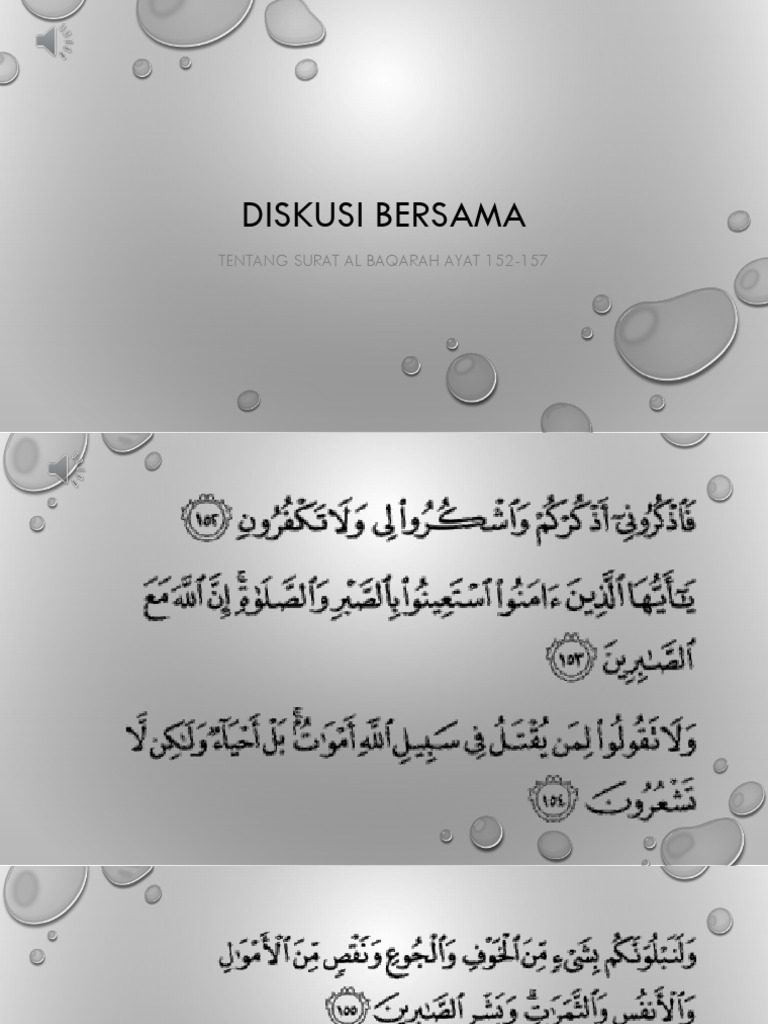 DISKUSI BERSAMA
TENTANG SURAT AL BAQARAH AYAT 152-157
فَٱذۡكُرُونِيٓ أَذۡكُرۡكُمۡ وَٱشۡكُرُواْ لِي وَلَا تَكۡفُرُونِ ١٥٢
يَٰٓأَيُّهَا ٱلَّذِينَ ءَامَنُواْ ٱسۡتَعِينُواْ بِٱلصَّبۡرِ وَٱلصَّلَوٰةِۚ إِنَّ ٱللَّهَ مَعَ
ٱلصَّٰبِرِينَ ١٥٣
وَلَا تَقُولُواْ لِمَن يُقۡتَلُ فِي سَبِيلِ ٱللَّهِ أَمۡوَٰتُۢۚ بَلۡ أَحۡيَآءٞ وَلَٰكِن لَّا
تَشۡعُرُونَ ١٥٤
وَلَنَبۡلُوَنَّكُم بِشَيۡءٖ مِّنَ ٱلۡخَوۡفِ وَٱلۡجُوعِ وَنَقۡصٖ مِّنَ ٱلۡأَمۡوَٰلِ
وَٱلۡأَنفُسِ وَٱلثَّمَرَٰتِۗ وَبَشِّرِ ٱلصَّٰبِرِينَ ١٥٥